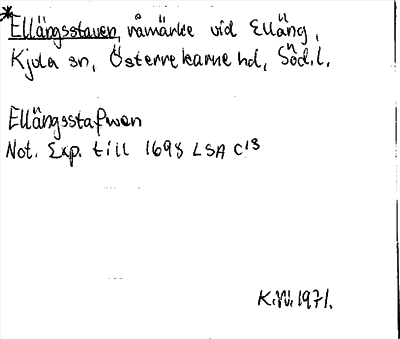 *Ellängsstaven, råmärke vid Elläng,
Kjula sn, Österrekarne hd, Söd.l.
Ellängsstafwen
Not. Exp. till 1698 LSA C¹³
K.W. 1971.